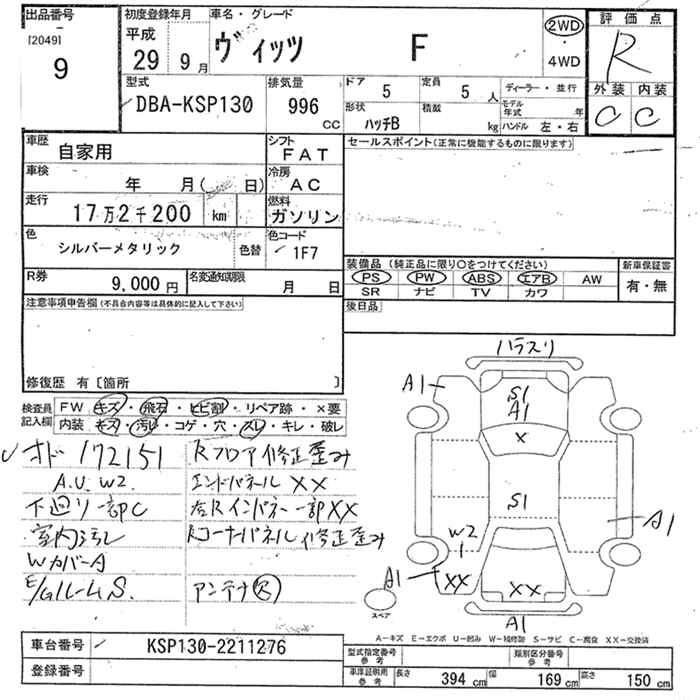 出品番号
[2049]
9
初度登録年月
平成
29年 9月
車名・グレード
ヴィッツ F
2WD
・
4WD
評価点
R
外装 内装
C C
型式
DBA-KSP130
排気量
996
CC
ドア 5
定員 5 人
ディーラー・並行
形状 ハッチB
積載 kg
モデル年式 年
ハンドル 左・右
車歴
自家用
シフト
FAT
車検
年 月( 日)
冷房
AC
走行
17万2千200 km
燃料
ガソリン
色
シルバーメタリック
色替
色コード
1F7
R券
9,000円
名変通知期限
月 日
セールスポイント(正常に機能するものに限ります)
装備品(純正品に限り○をつけてください)
新車保証書
PS PW ABS エアB AW
有・無
SR ナビ TV カワ
後日品
注意事項申告欄(不具合内容等は具体的に記入して下さい)
修復歴 有〔箇所 〕
検査員記入欄
FW キズ・飛石・ヒビ割・リペア跡・×要
内装 キズ・汚レ・コゲ・穴・スレ・キレ・破レ
オド 172151
A.U. W2.
下廻り一部C
室内汚レ
WカバーA
E/Gルーム S.
Rフロア修正歪み
エンドパネル XX
左Rインパネ一部XX
Rコーナーパネル修正歪み
アンテナ欠
ハラスリ
A1
S1
A1
X
S1
A1
W2
A1
XX
XX
A1
スペア
A-キズ E-エクボ U-凹み W-補修跡 S-サビ C-腐食 XX-交換済
車台番号
KSP130-2211276
登録番号
型式指定番号
参考
類別区分番号
参考
車庫証明用
参考
長さ 394 cm 幅 169 cm 高さ 150 cm